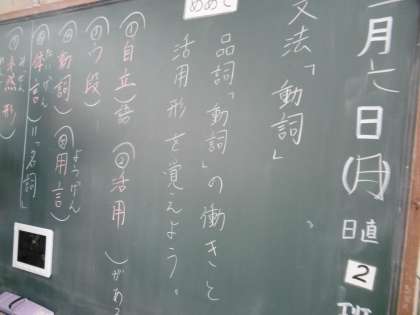 月六日(月)
日直 2 班
文法「動詞」
めあて
品詞「動詞」の働きと
活用形を覚えよう。
①(自立)語 ②(活用)がある
③(う段)
④(動詞) ⑤(用言)
ようげん
(体言)=「名詞」
たいげん
①(未然形)